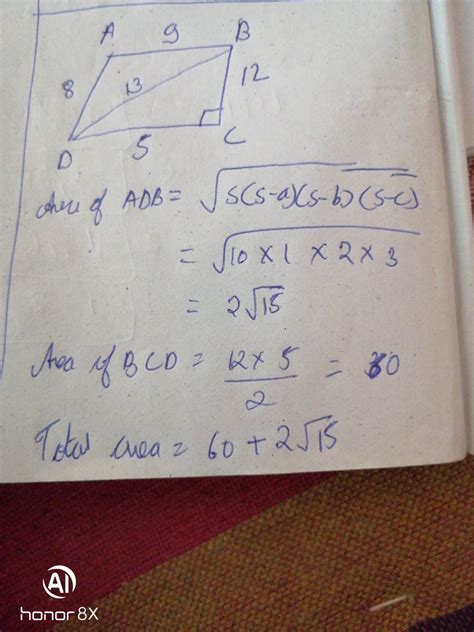 A 9 B
8 13 12
D 5 C
Area of ADB = √s(s-a)(s-b)(s-c)
= √10 × 1 × 2 × 3
= 2√15
Area of BCD = 12 × 5 / 2 = 30
Total area = 60 + 2√15
AI
honor 8X